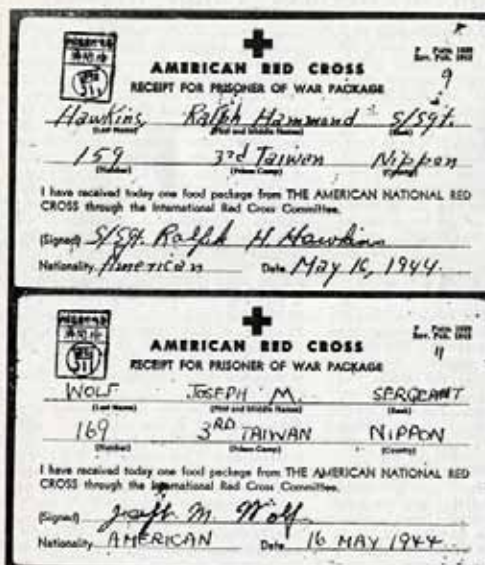 AMERICAN RED CROSS
RECEIPT FOR PRISONER OF WAR PACKAGE
9
Hawkins, Ralph Hammond S/Sgt.
(Last Name) (First and Middle Names) (Rank)
159 3rd Taiwan Nippon
(Number) (Prison Camp) (Country)
I have received today one food package from THE AMERICAN NATIONAL RED
CROSS through the International Red Cross Committee.
(Signed) S/Sgt. Ralph H Hawkins
Nationality American Date May 16, 1944.
AMERICAN RED CROSS
RECEIPT FOR PRISONER OF WAR PACKAGE
11
WOLF JOSEPH M. SERGEANT
(Last Name) (First and Middle Names) (Rank)
169 3RD TAIWAN NIPPON
(Number) (Prison Camp) (Country)
I have received today one food package from THE AMERICAN NATIONAL RED
CROSS through the International Red Cross Committee.
(Signed) Joseph M. Wolf
Nationality AMERICAN Date 16 MAY 1944